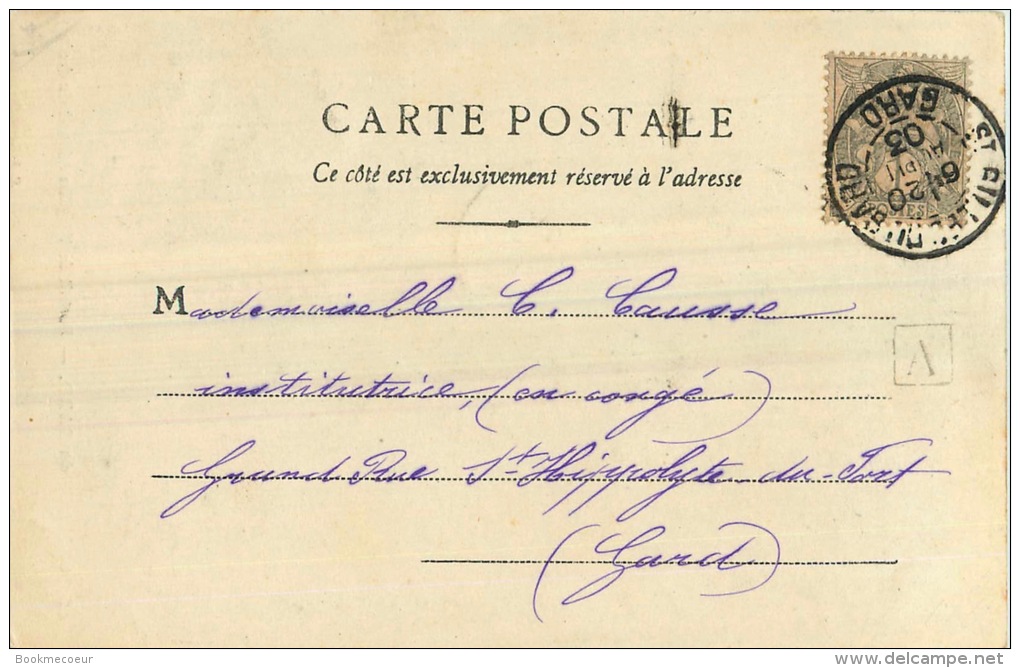 CARTE POSTALE
Ce côté est exclusivement réservé à l'adresse
Mademoiselle C. Causse
institutrice, (en congé)
Grand Rue St Hippolyte du-Fort
(Gard)
A
GARD
03
20
Bookmecoeur
www.delcampe.net